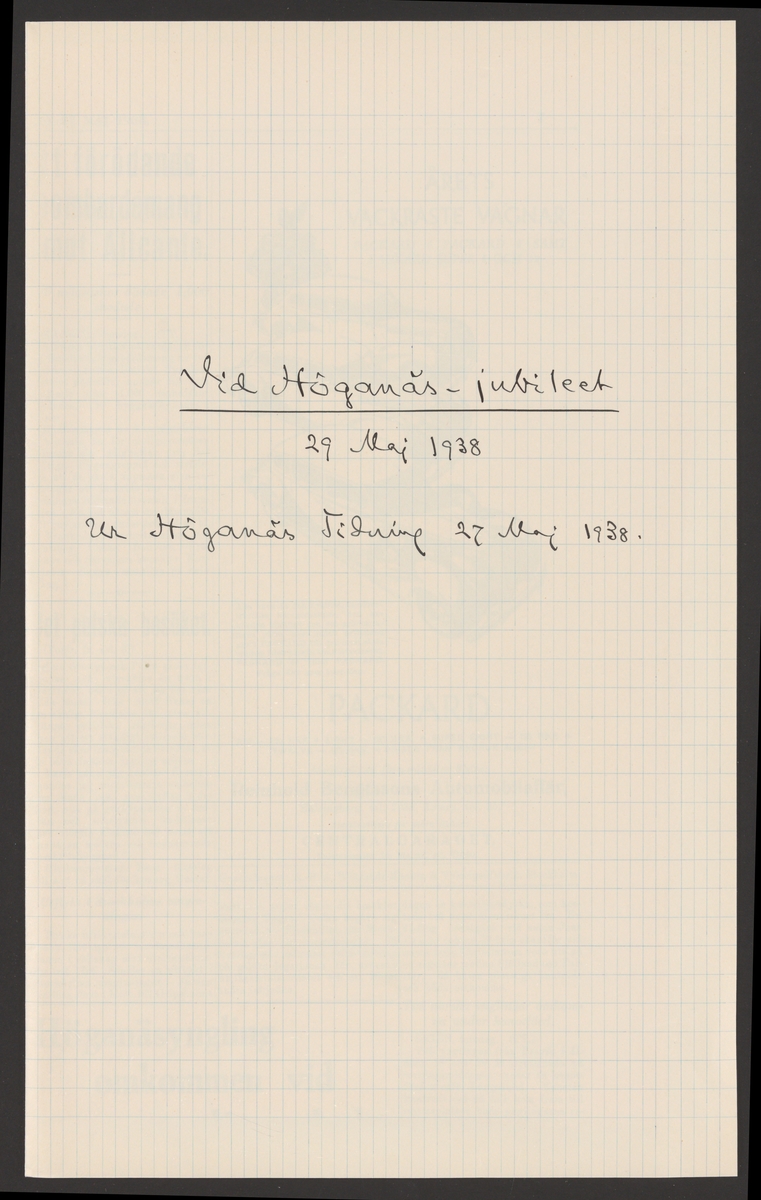 Vid Höganäs-jubileet
29 Maj 1938
Ur Höganäs Tidning 27 Maj 1938.